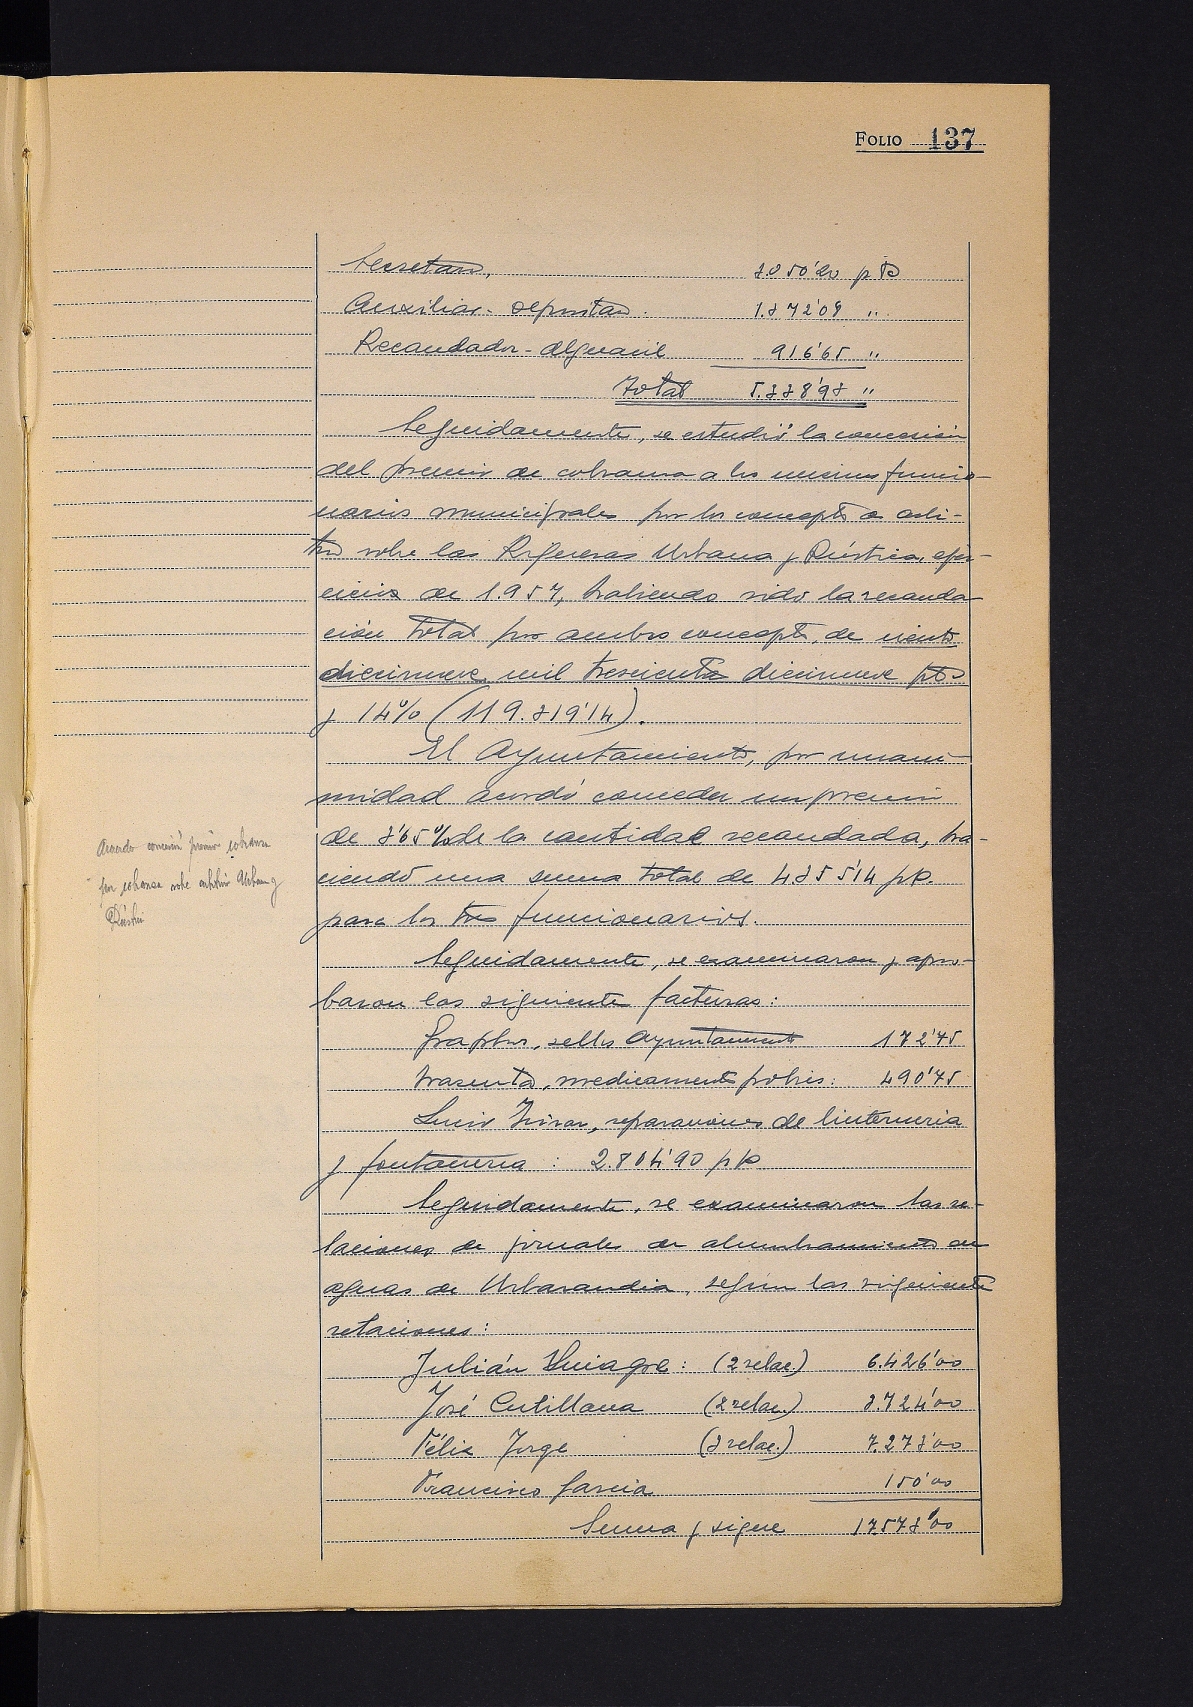 FOLIO 137
Secretario, 3.050'20 pts
Auxiliar-depositario. 1.372'08 "
Recaudador-alguacil 916'65 "
Total 5.338'93 "
Seguidamente, se estudió la concesión
del premio de cobranza a los mismos funcio-
narios municipales por los conceptos de arbi-
trio sobre las Riquezas Urbana y Rústica, ejer-
cicio de 1.957, habiendo sido la recauda-
ción total por ambos conceptos, de ciento
diecinueve mil trescientas diecinueve pts
y 14% (119.319'14).
El Ayuntamiento, por unani-
midad acordó conceder un premio
de 3'65% de la cantidad recaudada, ha-
ciendo una suma total de 4355'14 pts.
para los tres funcionarios.
Acuerdo concesión premio cobranza
por cobranza sobre arbitrio Urbana y
Rústica
Seguidamente, se examinaron y apro-
baron las siguientes facturas:
sellos Ayuntamiento 172'45
medicamentos pobres: 490'75
Lucio reparaciones de linterneria
y fontaneria: 2.804'90 pts
Seguidamente, se examinaron las re-
laciones de jornales de alumbramiento de
aguas de Urbarandia, según las siguientes
relaciones:
Julián (2 relac.) 6.426'00
José Cutillana (2 relac.) 3.724'00
Félix Jorge (3 relac.) 7.273'00
Francisco García 150'00
Suma y sigue 17573'00